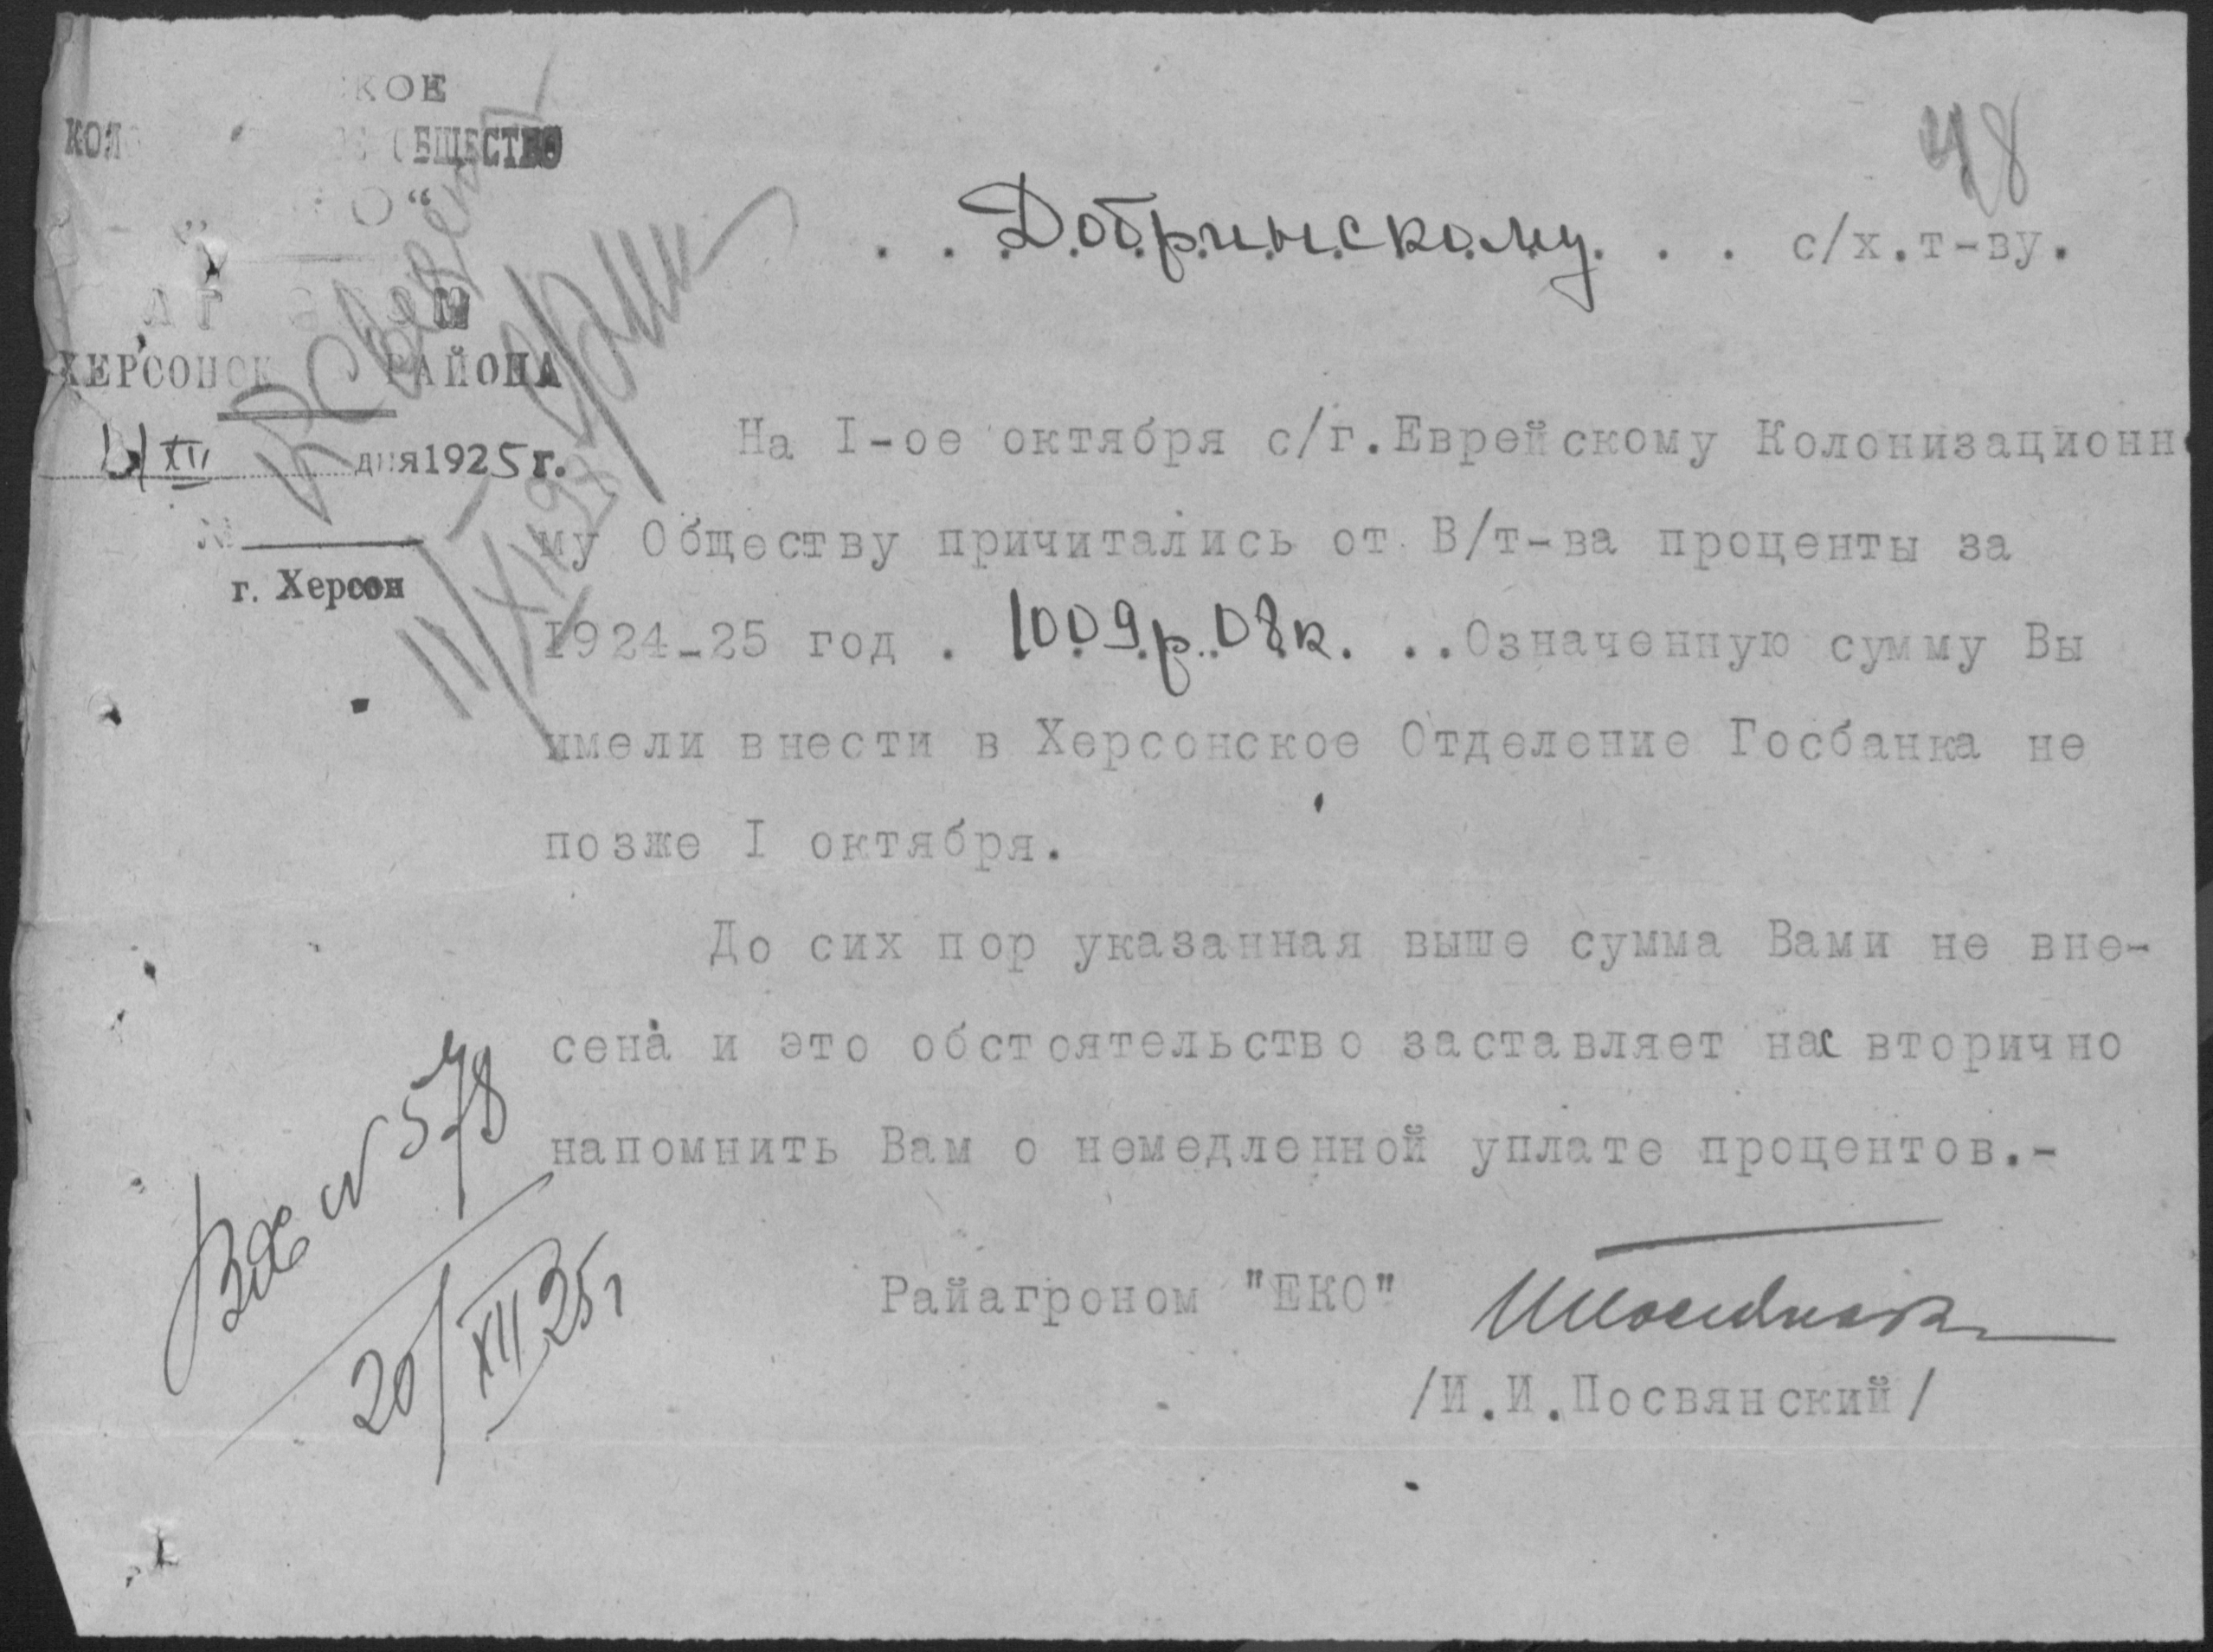 КОЕ
ОБЩЕСТВО
ХЕРСОНСК РАЙОНА
XII дня 1925 г.
№
г. Херсон
48
. . Добринскому. . . с/х.т-ву.
На I-ое октября с/г.Еврейскому Колонизационн
му Обществу причитались от В/т-ва проценты за
1924-25 год . 1009р.08к. . .Означенную сумму Вы
имели внести в Херсонское Отделение Госбанка не
позже I октября.
До сих пор указанная выше сумма Вами не вне-
сена и это обстоятельство заставляет нас вторично
напомнить Вам о немедленной уплате процентов.-
Райагроном "ЕКО"
/И.И.Посвянский/
Вх № 578
20/XII 25г